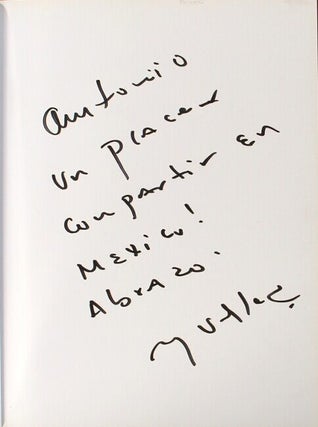 Antonio
un placer
compartir en
Mexico!
Abrazo.